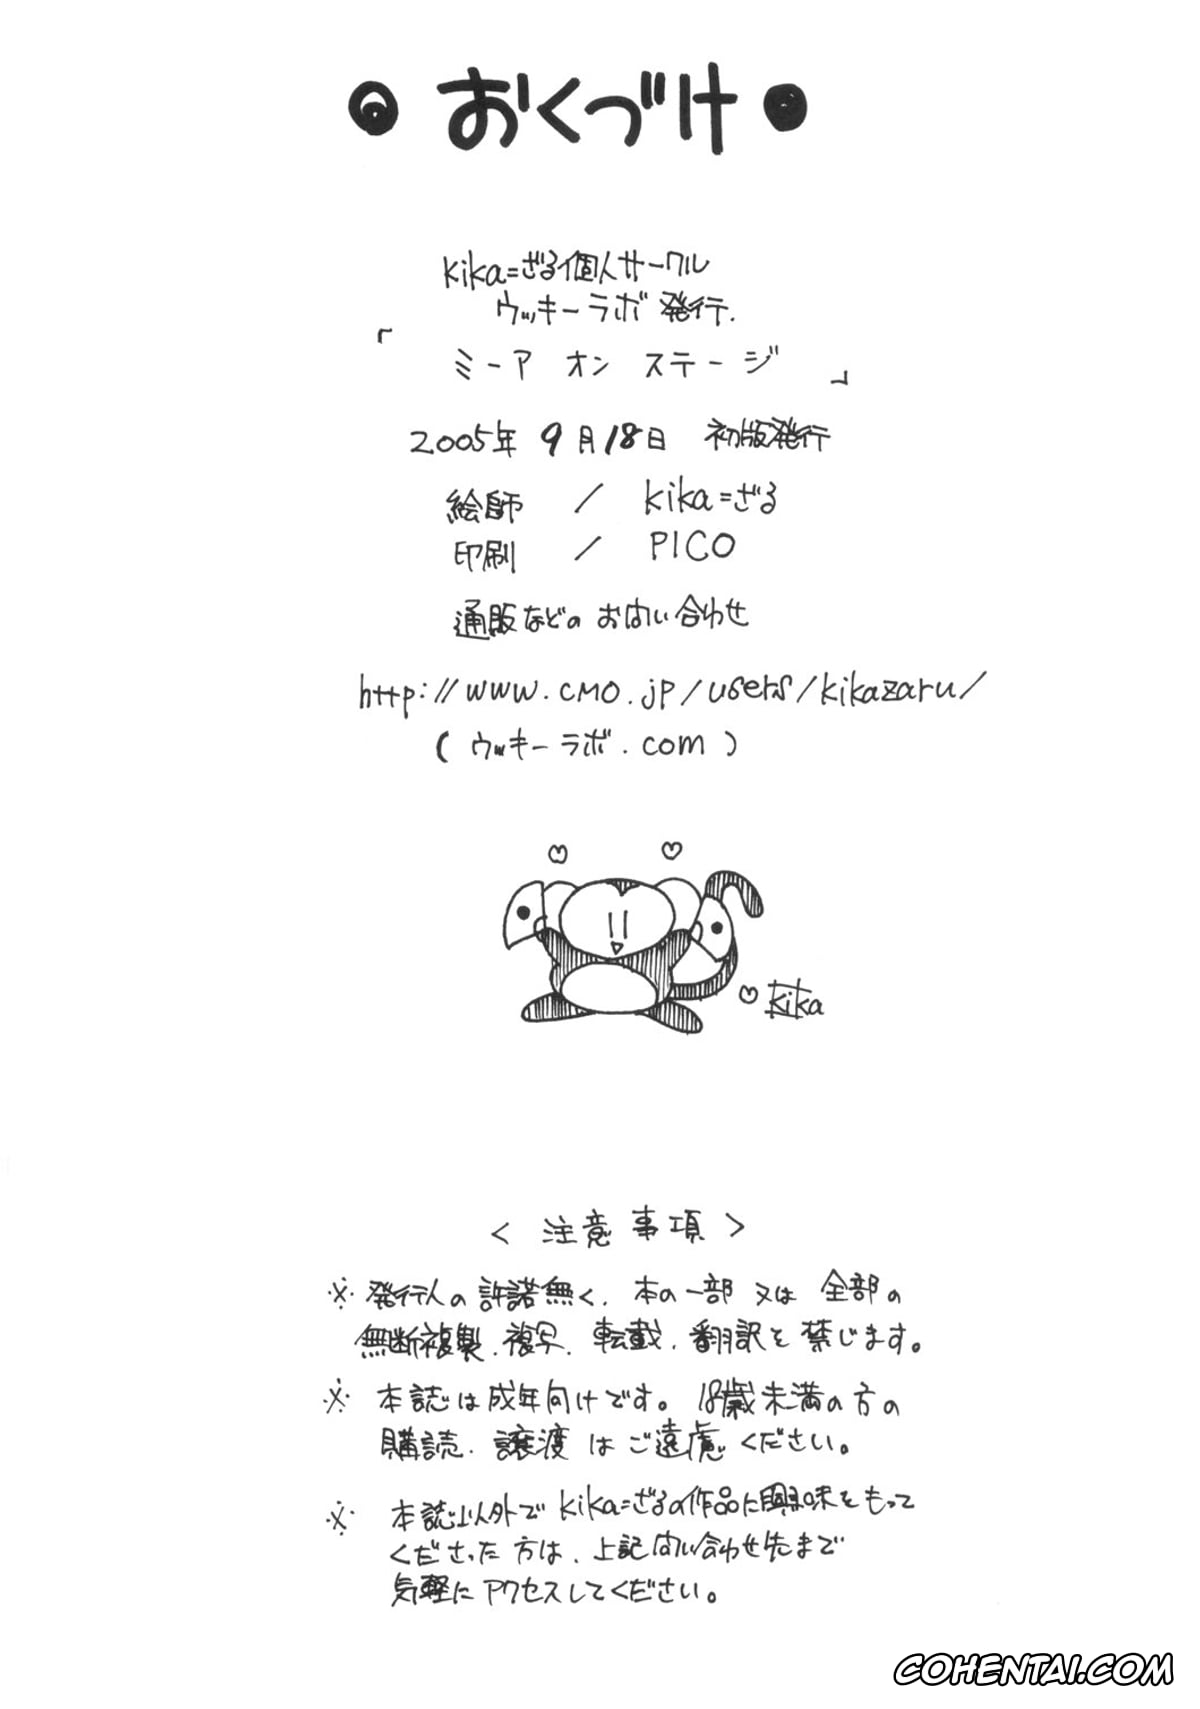 おくづけ
kika=ざる個人サークル
ウッキーラボ 発行.
「ミーア オン ステージ」
2005年 9月18日 初版発行
絵師 / kika=ざる
印刷 / PICO
通販などの お問い合わせ
http://www.cmo.jp/users/kikazaru/
( ウッキーラボ.com )
kika
< 注意事項 >
※ 発行人の許諾無く、本の一部 又は 全部の
無断複製、複写、転載、翻訳を禁じます。
※ 本誌は成年向けです。18歳未満の方の
購読、譲渡はご遠慮ください。
※ 本誌以外でkika=ざるの作品に興味をもって
くださった方は、上記問い合わせ先まで
気軽にアクセスしてください。
COHENTAI.COM